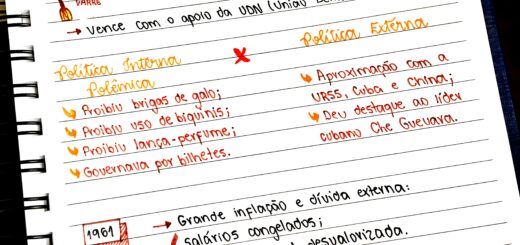 VARRE
→ Vence com o apoio da UDN (União
Política Interna
Polêmica
Proibiu brigas de galo;
Proibiu uso de biquinis;
Proibiu lança-perfume;
Governava por bilhetes.
X
Política Externa
Aproximação com a
URSS, Cuba e China;
Deu destaque ao líder
cubano Che Guevara.
1961
→ Grande inflação e dívida externa:
salários congelados;
desvalorizada.